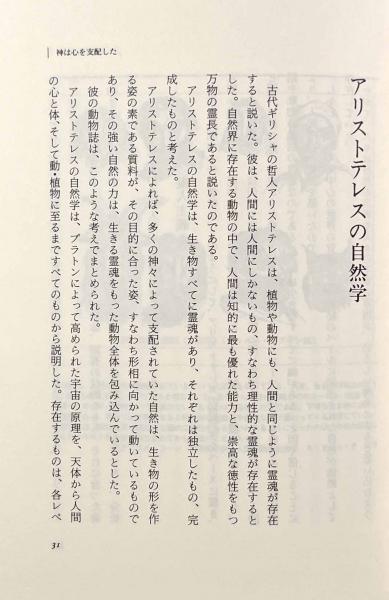 神は心を支配した
アリストテレスの自然学
古代ギリシャの哲人アリストテレスは、植物や動物にも、人間と同じように霊魂が存在
すると説いた。彼は、人間には人間にしかないもの、すなわち理性的な霊魂が存在すると
した。自然界に存在する動物の中で、人間は知的に最も優れた能力と、崇高な徳性をもつ
万物の霊長であると説いたのである。
アリストテレスの自然学は、生き物すべてに霊魂があり、それぞれは独立したもの、完
成したものと考えた。
アリストテレスによれば、多くの神々によって支配されていた自然は、生き物の形を作
る姿の素である質料が、その目的に合った姿、すなわち形相に向かって動いているもので
あり、その強い自然の力は、生きる霊魂をもった動物全体を包み込んでいるとした。
彼の動物誌は、このような考えでまとめられた。
アリストテレスの自然学は、プラトンによって高められた宇宙の原理を、天体から人間
の心と体、そして動・植物に至るまですべてのものから説明した。存在するものは、各レベ
31